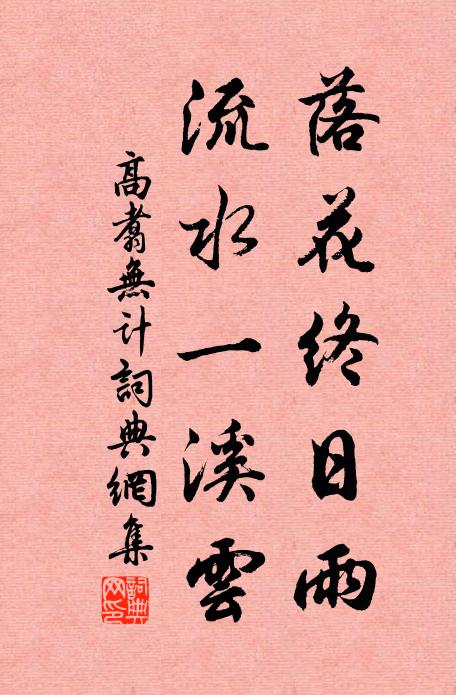 落花終日雨
流水一溪雲
高翥無計詞典網集
詞典網印